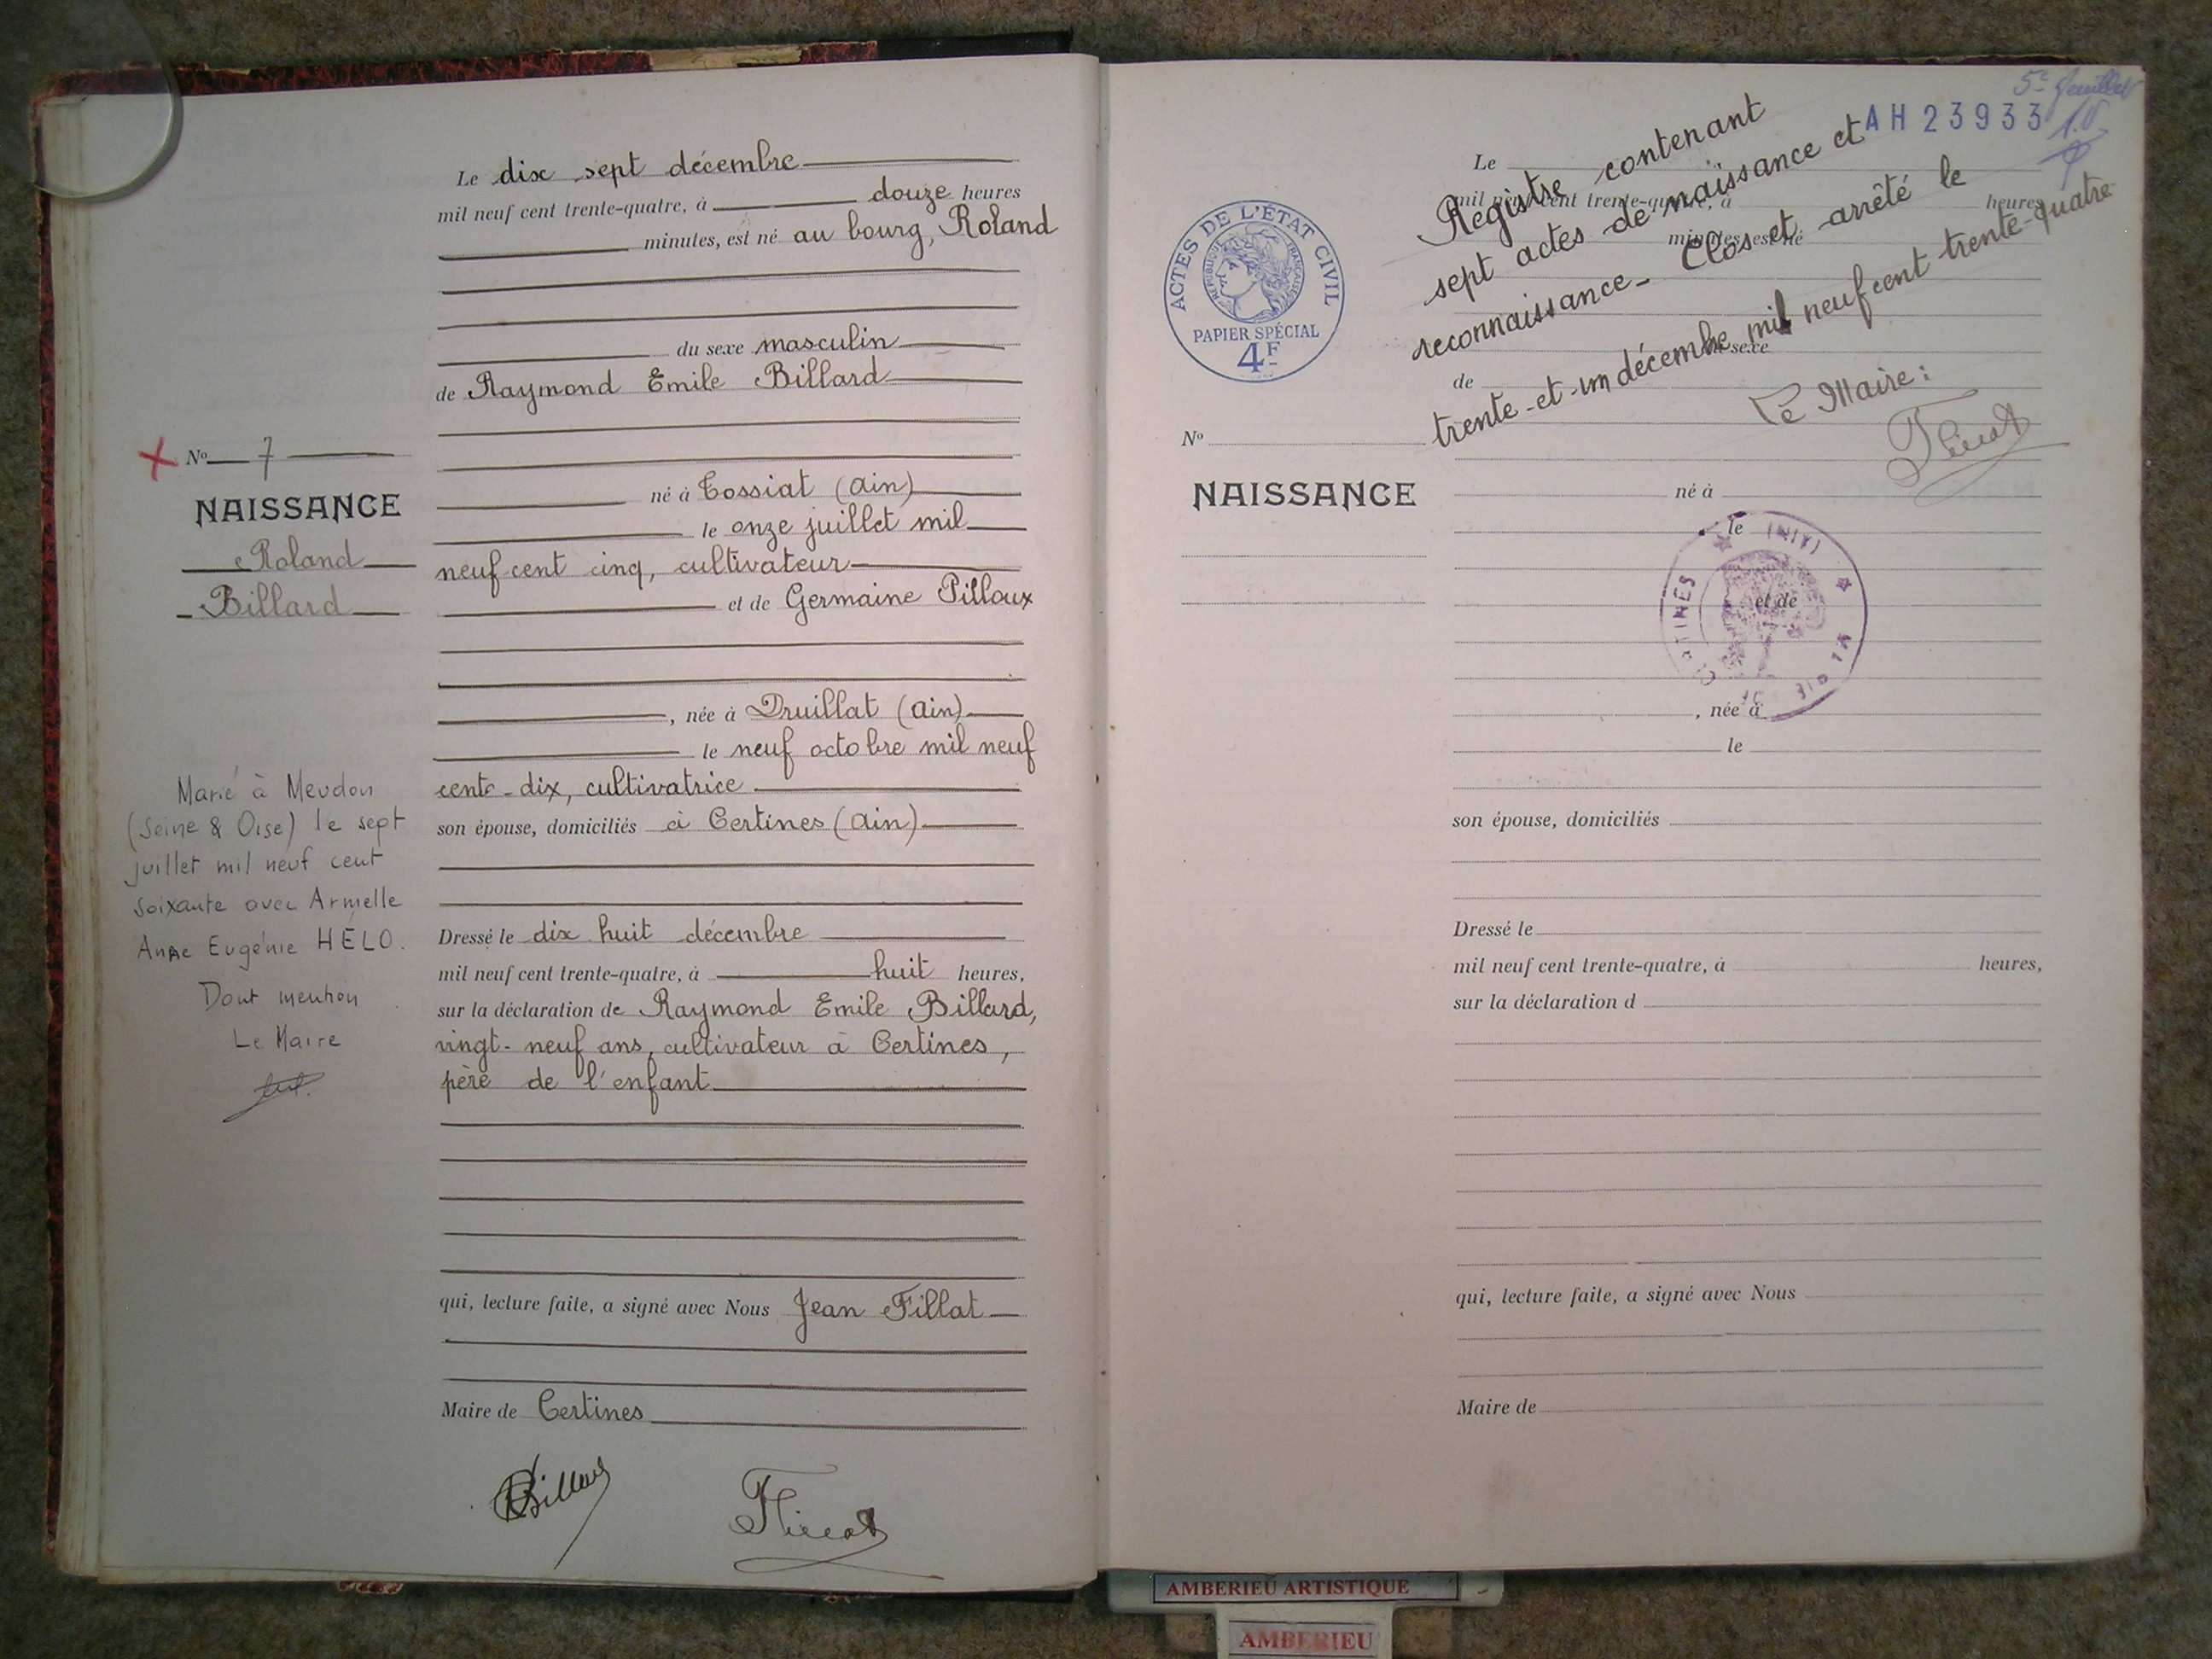 Le dix sept décembre
mil neuf cent trente-quatre, à douze heures
minutes, est né au bourg, Roland
du sexe masculin
de Raymond Emile Billard
né à Tossiat (Ain)
le onze juillet mil
neuf cent cinq, cultivateur
et de Germaine Pilloux
, née à Druillat (Ain)
le neuf octobre mil neuf
cent-dix, cultivatrice
son épouse, domiciliés à Certines (Ain)
Dressé le dix huit décembre
mil neuf cent trente-quatre, à huit heures,
sur la déclaration de Raymond Emile Billard,
vingt-neuf ans, cultivateur à Certines,
père de l'enfant
qui, lecture faite, a signé avec Nous Jean Tillat
Maire de Certines
Billard
No 7
NAISSANCE
Roland
Billard
Marié à Meudon
(Seine & Oise) le sept
juillet mil neuf cent
soixante avec Armelle
Anne Eugénie HÉLO.
Dont mention
Le Maire
5e feuillet
AH 23933
ACTES DE L'ÉTAT CIVIL
RÉPUBLIQUE FRANÇAISE
PAPIER SPÉCIAL
4F
Registre contenant
sept actes de naissance et
reconnaissance - Clos et arrêté le
trente-et-un décembre mil neuf cent trente-quatre
Le Maire:
Le
mil neuf cent trente-quatre, à heures
minutes, est né
du sexe
de
No
NAISSANCE
né à
le
et de
, née à
le
son épouse, domiciliés
Dressé le
mil neuf cent trente-quatre, à heures,
sur la déclaration d
qui, lecture faite, a signé avec Nous
Maire de
MAIRIE DE CERTINES (AIN)
AMBERIEU ARTISTIQUE
AMBERIEU